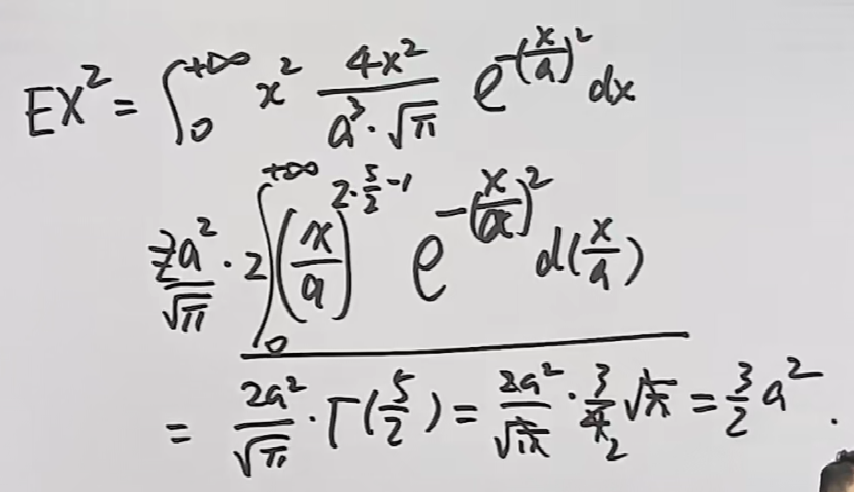 EX² = ∫₀^{+∞} x² \frac{4x²}{a³·√π} e^{-(\frac{x}{a})²} dx
\frac{2a²}{√π} · 2 ∫₀^{+∞} (\frac{x}{a})^{2·\frac{5}{2}-1} e^{-(\frac{x}{a})²} d(\frac{x}{a})
= \frac{2a²}{√π} · Γ(\frac{5}{2}) = \frac{2a²}{√π} · \frac{3}{4}√π = \frac{3}{2}a².